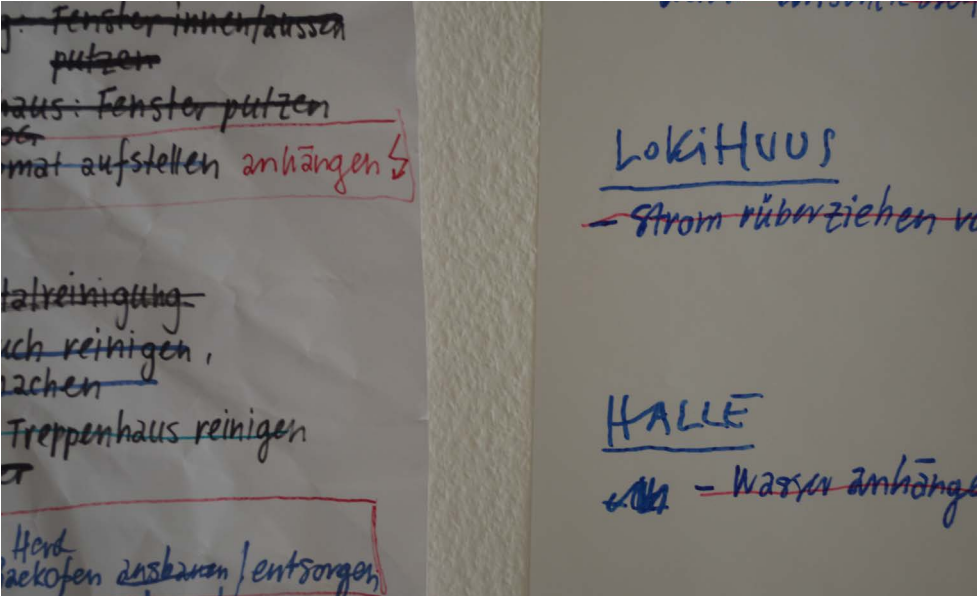 g: Fenster innen/aussen
putzen
haus: Fenster putzen
OG
mat aufstellen anhängen
talreinigung
uch reinigen,
machen
Treppenhaus reinigen
Herd
Backofen ausbauen / entsorgen
LOKiHUUS
- Strom rüberziehen vo
HALLE
- Wasser anhänge